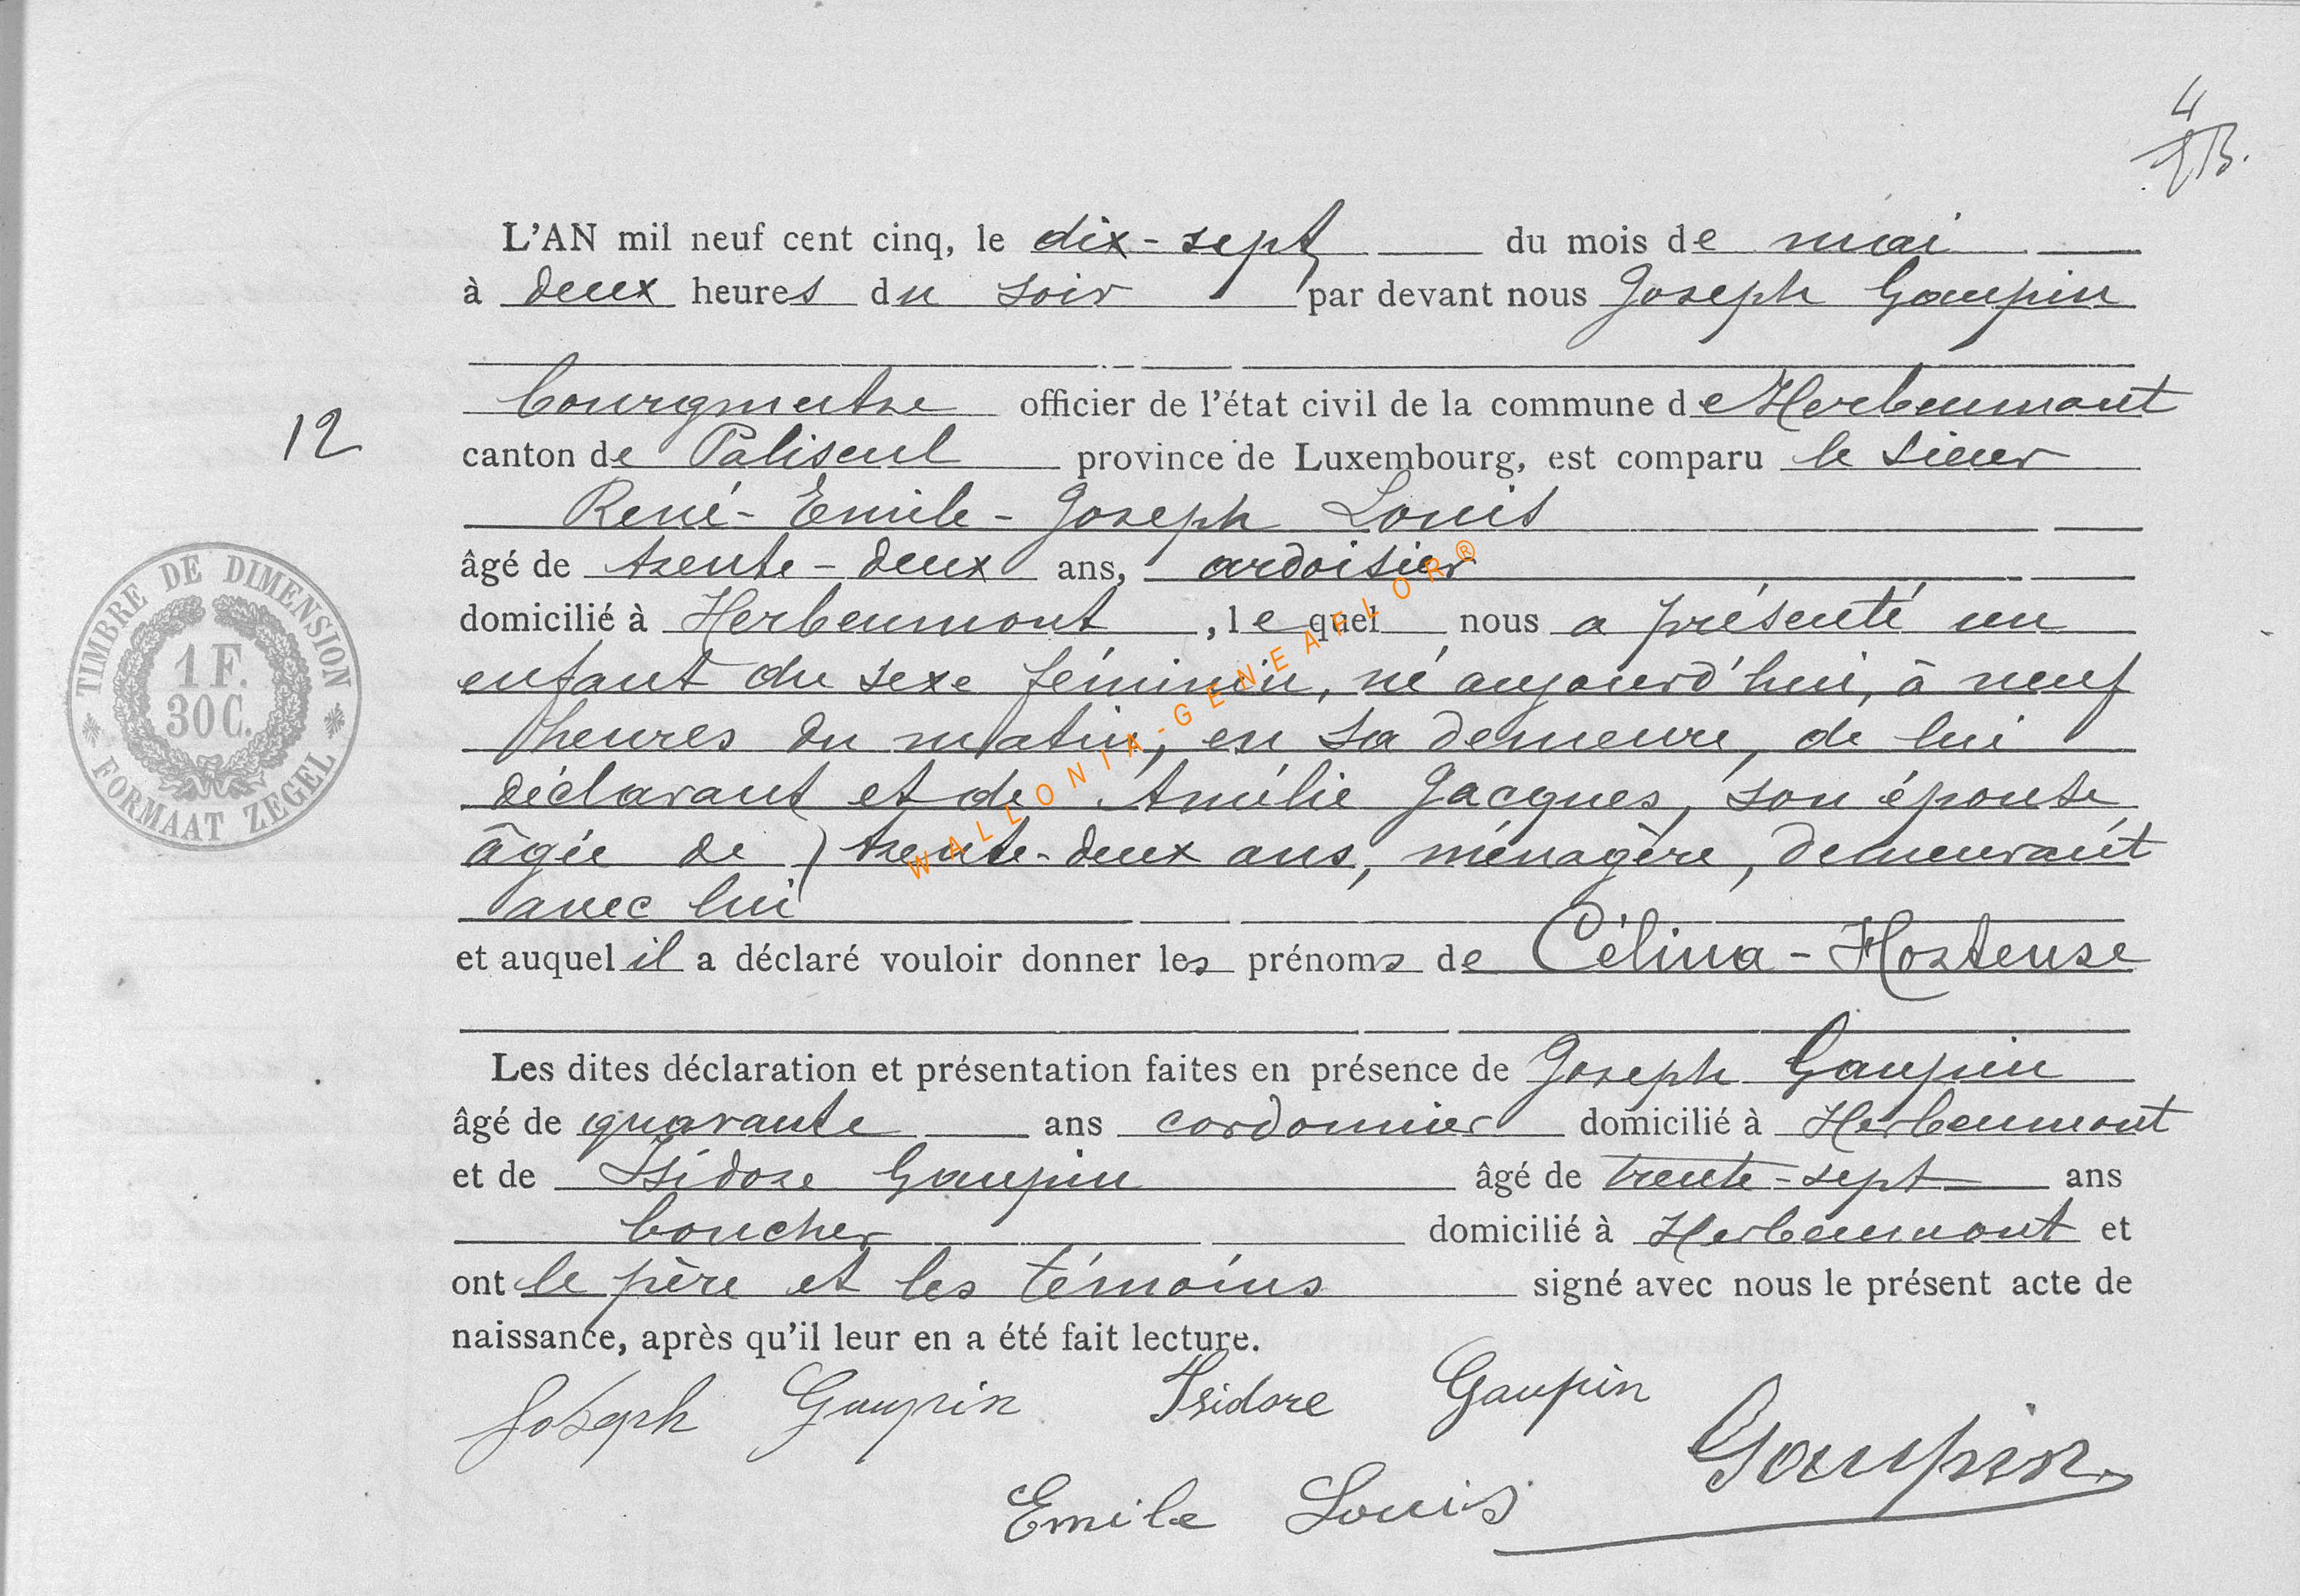 4
L'AN mil neuf cent cinq, le dix-sept du mois de mai
à deux heures du soir par devant nous Joseph Gaupin
bourgmestre officier de l'état civil de la commune de Herbeumont
12
canton de Paliseul province de Luxembourg, est comparu le sieur
René-Emile-Joseph Louis
âgé de trente-deux ans, ardoisier
domicilié à Herbeumont, lequel nous a présenté un
enfant du sexe féminin, né aujourd'hui, à neuf
heures du matin, en sa demeure, de lui
déclarant et de Amélie Jacques, son épouse
âgée de trente-deux ans, ménagère, demeurant
avec lui
et auquel il a déclaré vouloir donner les prénoms de Célina-Hortense
Les dites déclaration et présentation faites en présence de Joseph Gaupin
âgé de quarante ans cordonnier domicilié à Herbeumont
et de Isidore Gaupin âgé de trente-sept ans
boucher domicilié à Herbeumont et
ont le père et les témoins signé avec nous le présent acte de
naissance, après qu'il leur en a été fait lecture.
Joseph Gaupin Isidore Gaupin
Gaupin
Emile Louis
TIMBRE DE DIMENSION
1 F.
30 C.
FORMAAT ZEGEL
WALLONIA-GENEAFLOR®